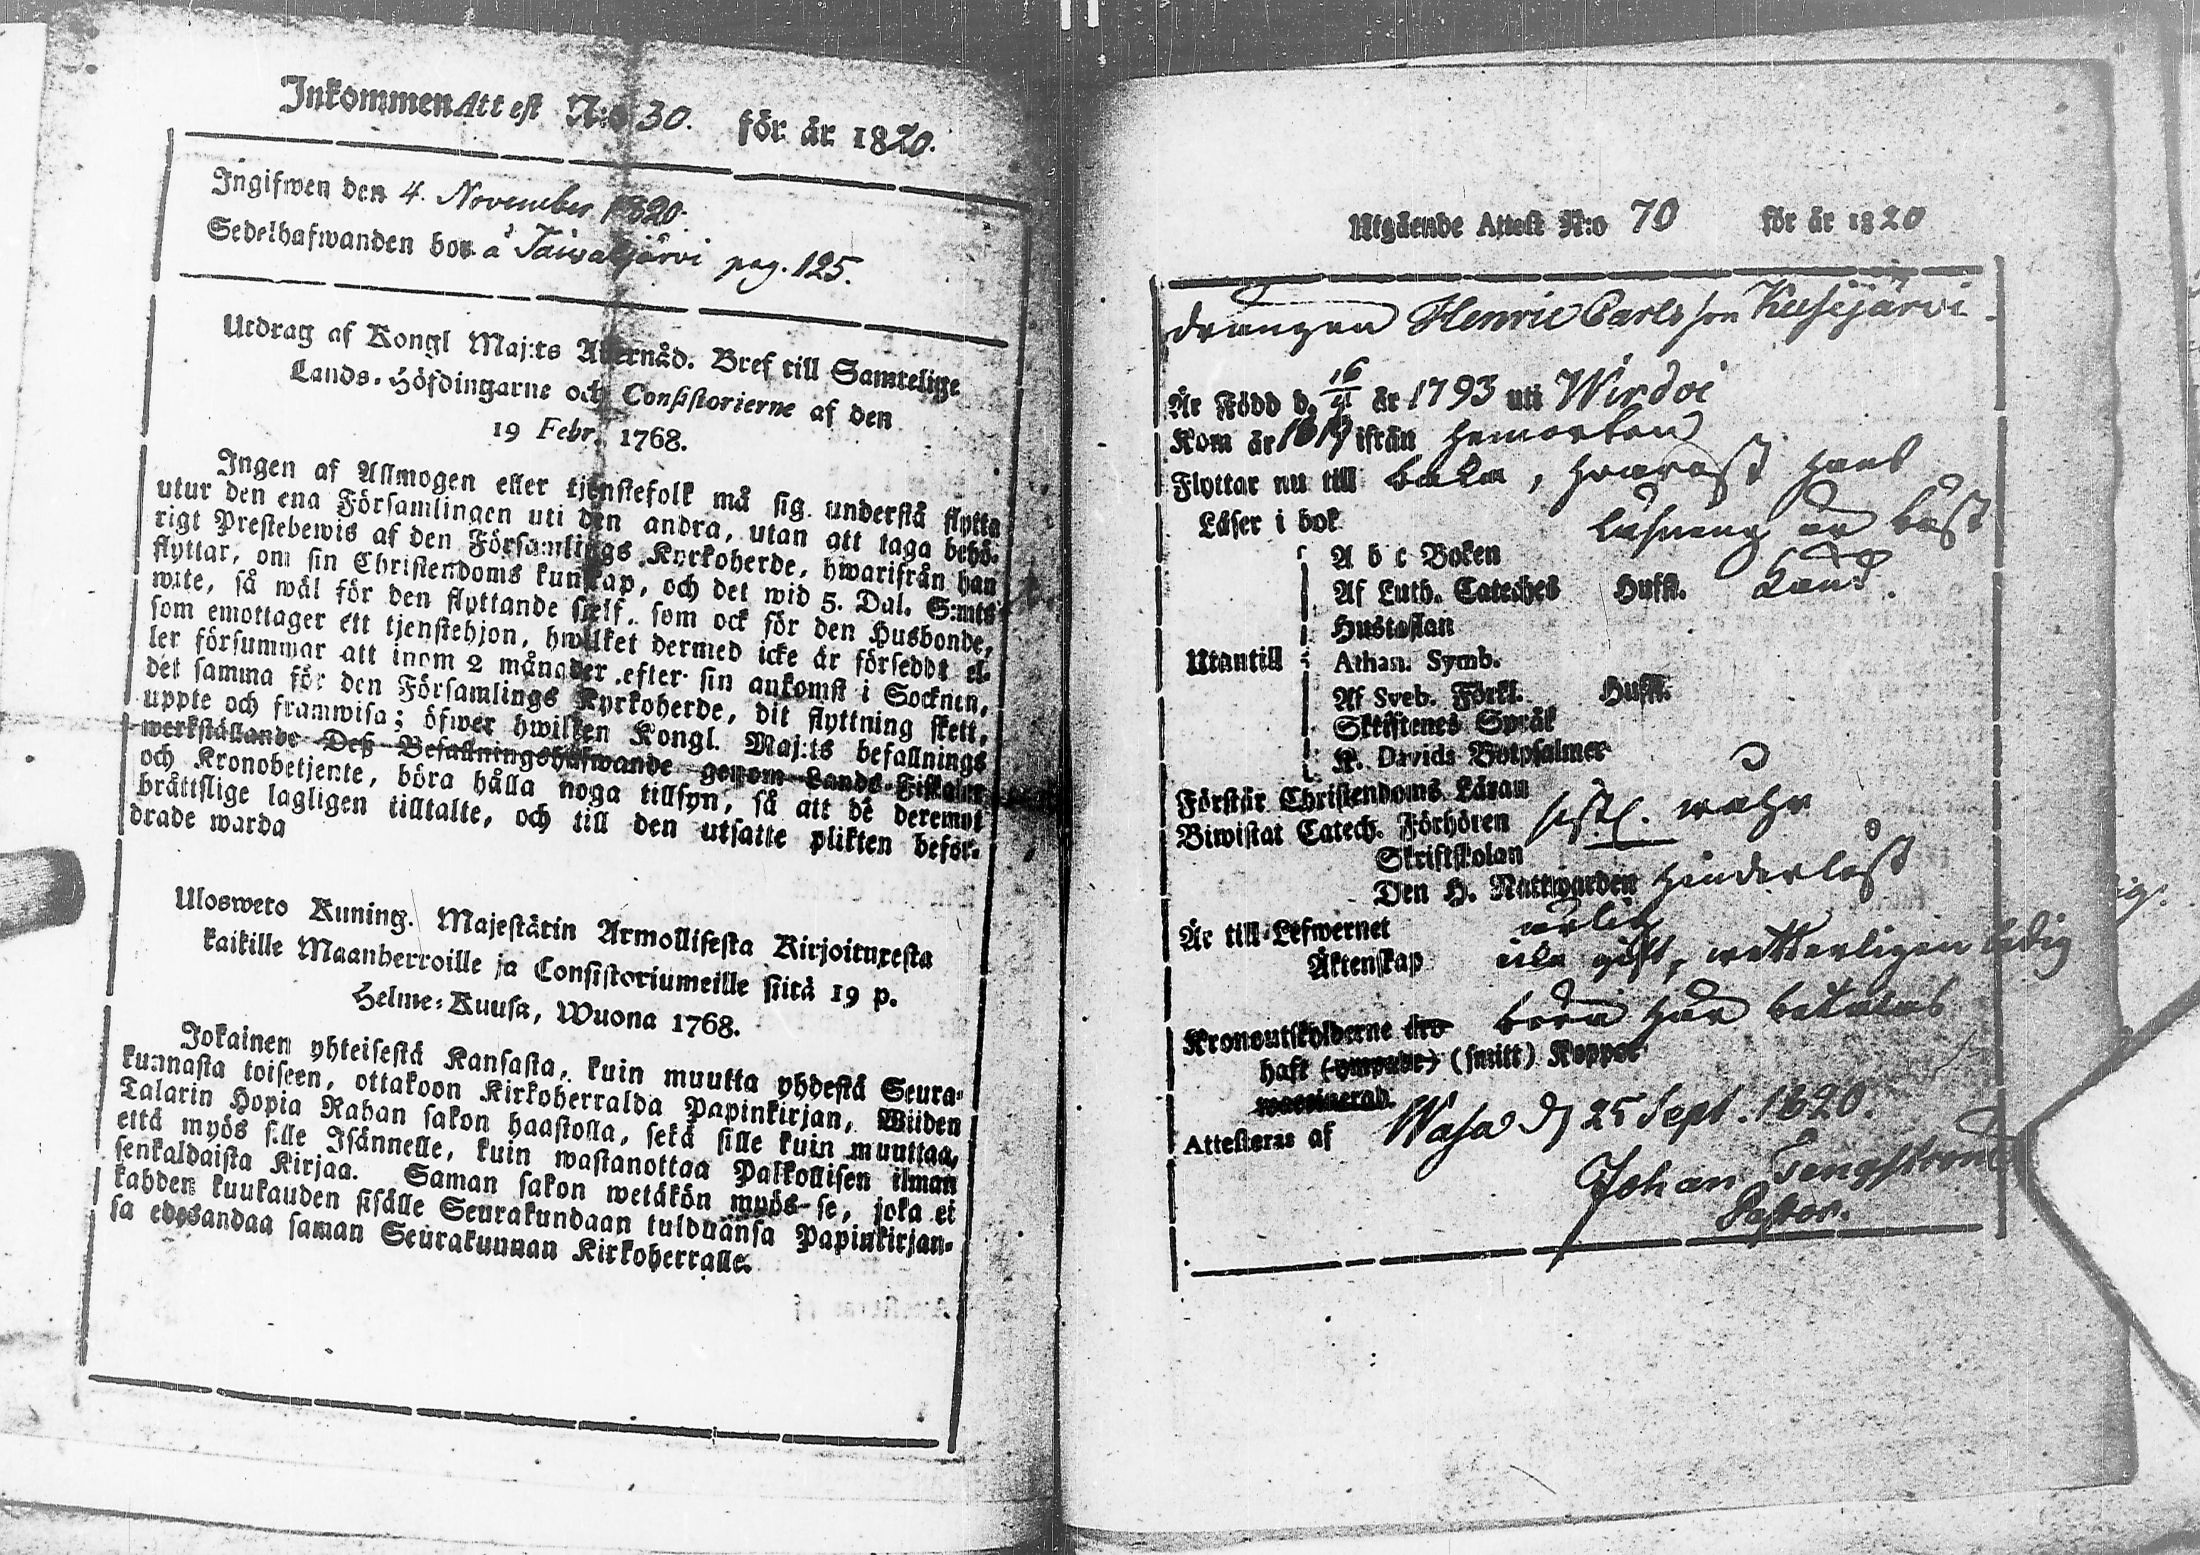 Inkommen Attest N:o 30. för år 1820.
Ingifwen den 4. November 1820.
Sedelhafwanden bor å Taiwaljärvi pag. 125.
Utdrag af Kongl Maj:ts Allernåd. Bref till Samtelige
Lands-Höfdingarne och Consistorierne af den
19 Febr. 1768.
Ingen af Allmogen eller tjenstefolk må sig understå flytta
utur den ena Församlingen uti den andra, utan att taga behö-
rigt Prestebewis af den Församlings Kyrkoherde, hwarifrån han
flyttar, om sin Christendoms kunskap, och det wid 5. Dal. S:mts
wite, så wäl för den flyttande sjelf, som ock för den Husbonde,
som emottager ett tjenstehjon, hwilket dermed icke är förseddt el-
ler försummar att inom 2 månader efter sin ankomst i Socknen,
det samma för den Församlings Kyrkoherde, dit flyttning skett,
uppte och framwisa; öfwer hwilken Kongl. Maj:ts befallnings
werkställande Deß Befallningshafwande genom Lands-Fiskaler
och Kronobetjente, böra hålla noga tillsyn, så att de deremot
bråttslige lagligen tilltalte, och till den utsatte plikten beför-
drade warda
Ulosweto Kuning. Majestätin Armollisesta Kirjoituxesta
kaikille Maanherroille ja Consistoriumeille siitä 19 p.
Helme-Kuusa, Wuona 1768.
Jokainen yhteisestä Kansasta, kuin muutta yhdestä Seura-
kunnasta toiseen, ottakoon Kirkoherralda Papinkirjan, Wiiden
Talarin Hopia Rahan sakon haastolla, sekä sille kuin muuttaa,
että myös sille Isännelle, kuin wastanottaa Palkollisen ilman
senkaldaista Kirjaa. Saman sakon wetäkön myös se, joka ei
kahden kuukauden sisälle Seurakundaan tulduansa Papinkirjan-
sa edesandaa saman Seurakunnan Kirkoherralle.
Utgående Attest N:o 70 för år 1820
drängen Henric Carlsson Kusijärvi
Är Född d. 16/11 år 1793 uti Wirdoi
Kom år 1819 ifrån hemorten
Flyttar nu till baka, hvarest hans
Läser i bok läsning är bäst
A b c Boken
Af Luth. Cateches Hufst. känd.
Hustaflan
Utantill Athan. Symb.
Af Sveb. Förkl. Hufst.
Skriftenes Språk
K. Davids Botpsalmer
Förstår Christendoms Läran
Biwistat Catech. Förhören
Skriftskolan
Den H. Nattwarden hinderlöst
Är till Lefwernet ärlig
Äktenskap icke gift, wetterligen ledig
Kronoutskylderne
haft (smitt) Koppor
Attesteras af Wasa d 25 Sept. 1820.
Johan Tengström
Pastor.